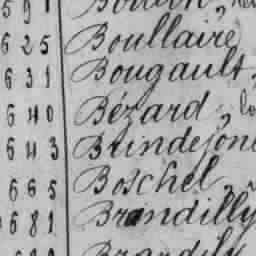 625 Boullaire
631 Bougault,
640 Bézard,
643
665 Boschel,
681 Brandilly